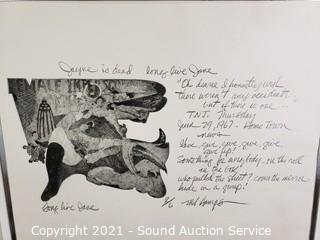 Jayne is dead long live Jane
"Oh dearie I honestly wish
there weren't any accidents
but if there is one...
T.N.T. Thursday
June 29, 1967 - Home Town
news
Give, give, give, give, give
give up!
Something for everybody - on the roll
in the box
who pulled the sheet? cover the mirror
hide in a
MALE
Long live Jane
Copyright 2021 - Sound Auction Service